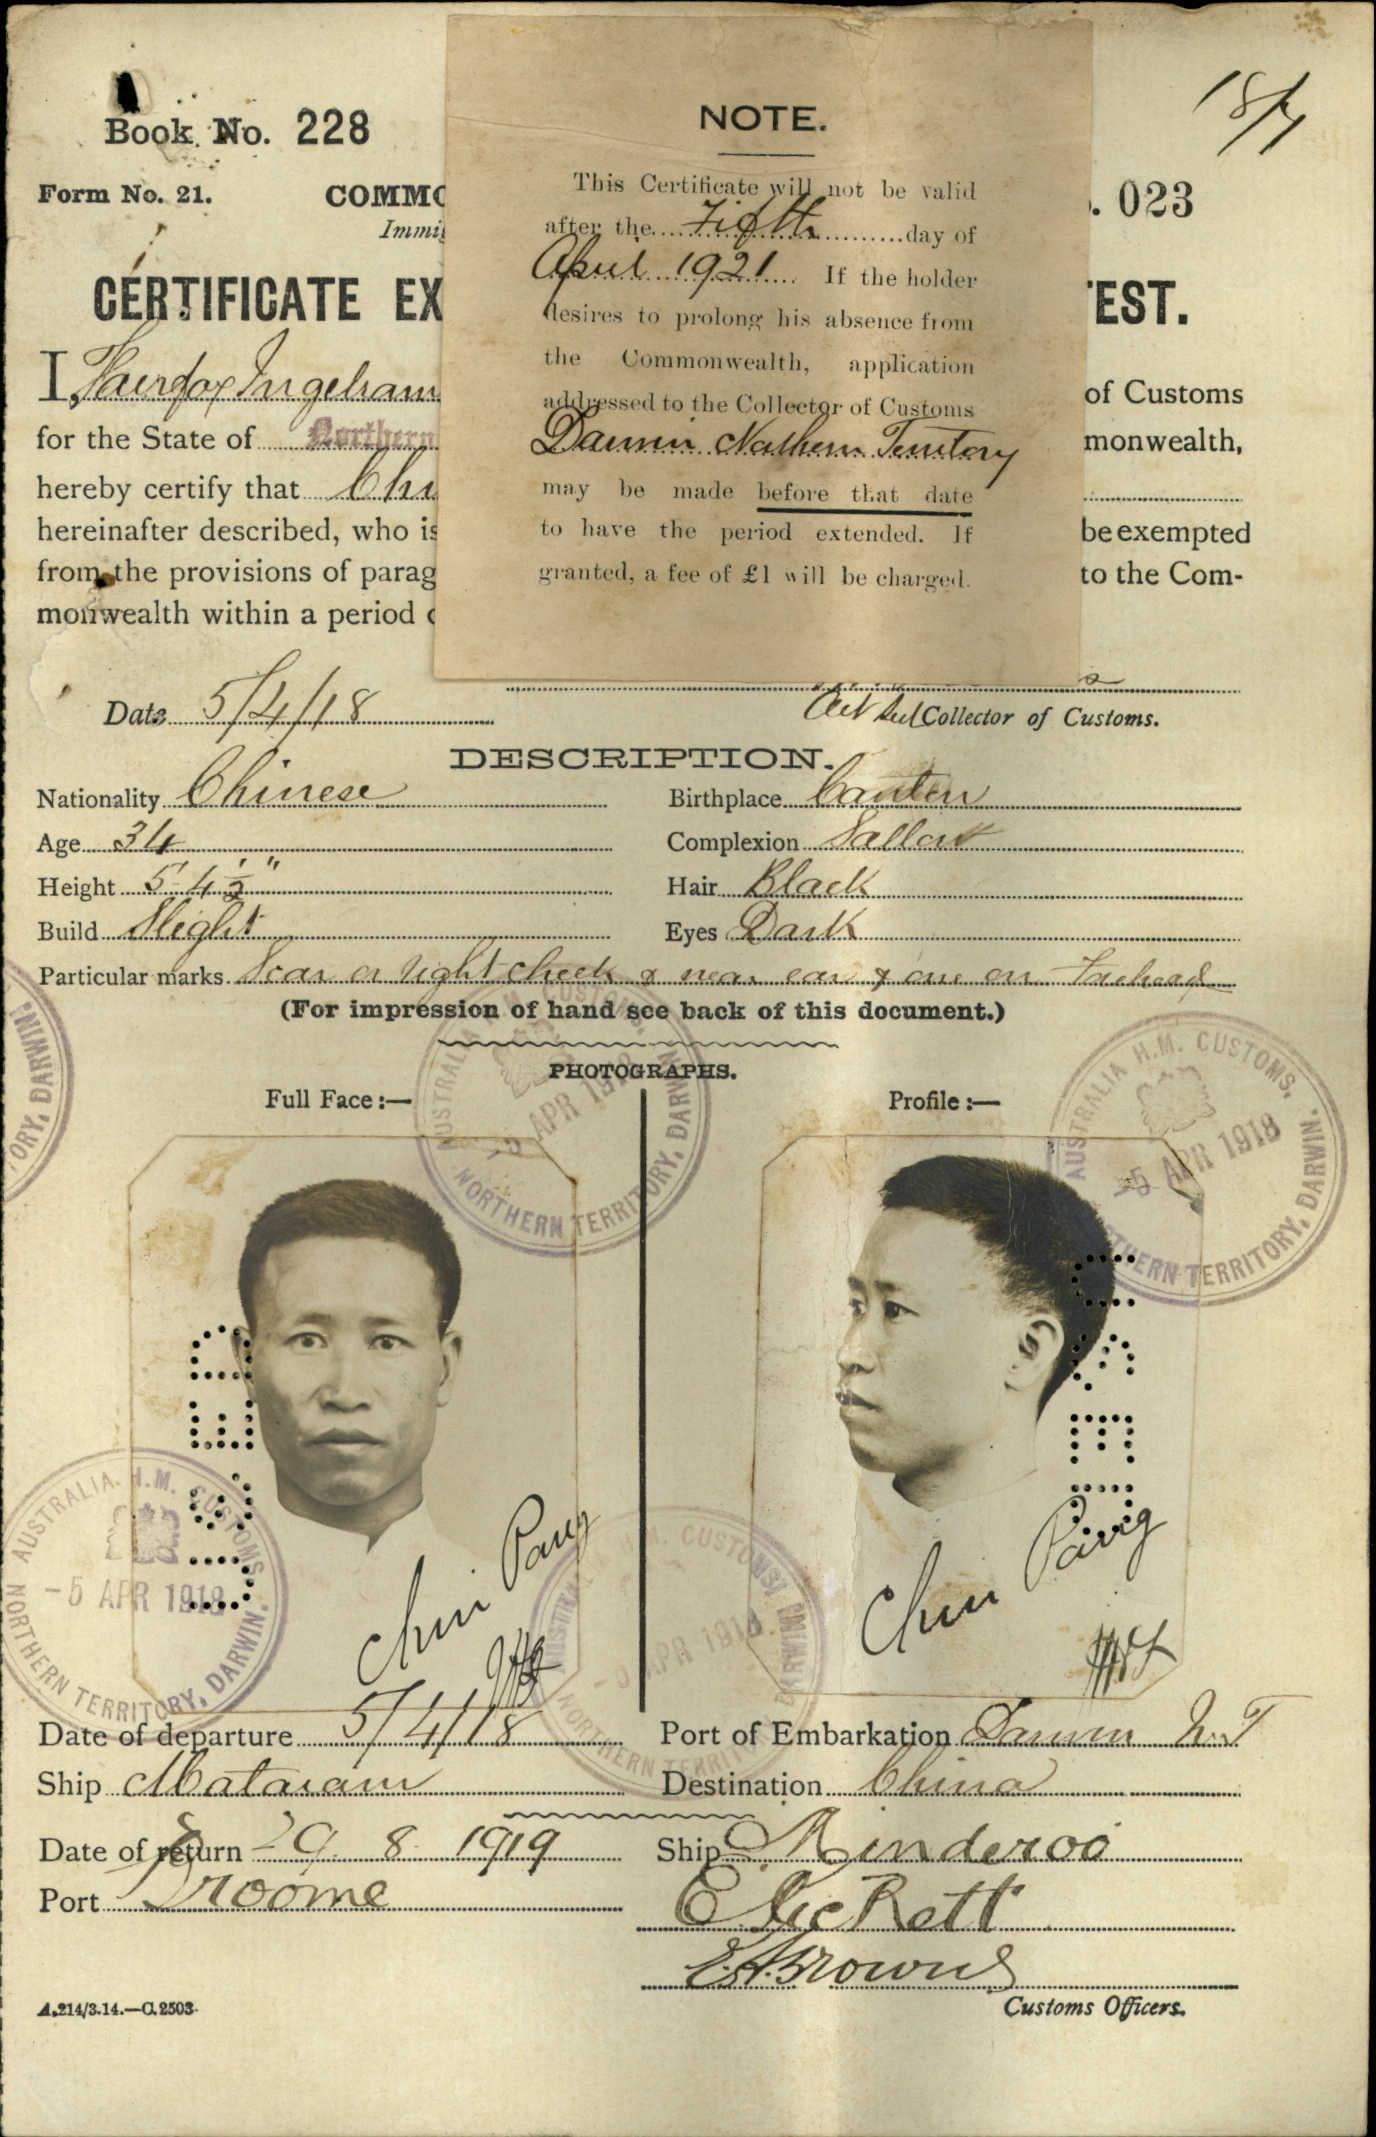 18/7
Book No. 228
NOTE.
This Certificate will not be valid
after the Fifth day of
April 1921 If the holder
desires to prolong his absence from
the Commonwealth, application
addressed to the Collector of Customs
Darwin Northern Territory
may be made before that date
to have the period extended. If
granted, a fee of £1 will be charged.
Form No. 21. COMMO . 023
Immig
CERTIFICATE EX TEST.
I, Fairfax Ingelram of Customs
for the State of Northern monwealth,
hereby certify that Chi
hereinafter described, who is be exempted
from the provisions of parag to the Com-
monwealth within a period o
Date 5/4/18 Collector of Customs.
DESCRIPTION.
Nationality Chinese Birthplace Canton
Age 34 Complexion Sallow
Height 5' 4 1/2" Hair Black
Build Slight Eyes Dark
Particular marks Scar on right cheek & near ear & one on Forehead
(For impression of hand see back of this document.)
PHOTOGRAPHS.
Full Face :— Profile :—
AUSTRALIA H.M. CUSTOMS.
-5 APR 1918
NORTHERN TERRITORY, DARWIN.
AUSTRALIA H.M. CUSTOMS.
-5 APR 1918
NORTHERN TERRITORY, DARWIN.
TORY, DARWIN
AUSTRALIA H.M. CUSTOMS.
-5 APR 1918
NORTHERN TERRITORY, DARWIN.
H.M. CUSTOMS
-5 APR 1918
NORTHERN TERRITORY, DARWIN
Chin Pang Chin Pang
Date of departure 5/4/18 Port of Embarkation Darwin N.T
Ship Mataram Destination China
Date of return 29. 8. 1919 Ship Minderoo
Port Broome
E.A. Browne
A.214/3.14.—C.2503. Customs Officers.